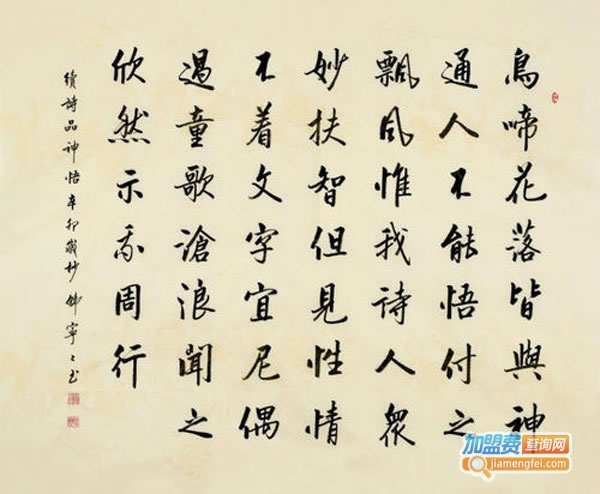 鳥啼花落皆與神
通人不能悟付之
飄風惟我詩人眾
妙扶智但見性情
不着文字宣尼偶
過童歌滄浪聞之
欣然示我周行
續詩品神悟辛卯歲杪寧
加盟费查询网
jiamengfei.com